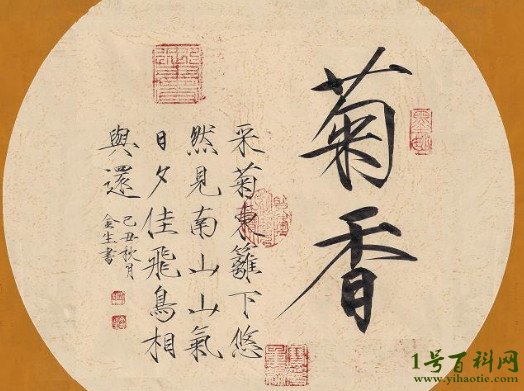 菊香
采菊東籬下悠
然見南山山氣
日夕佳飛鳥相
與還
己丑秋月
金生書
1号百科网
www.yihaotie.com